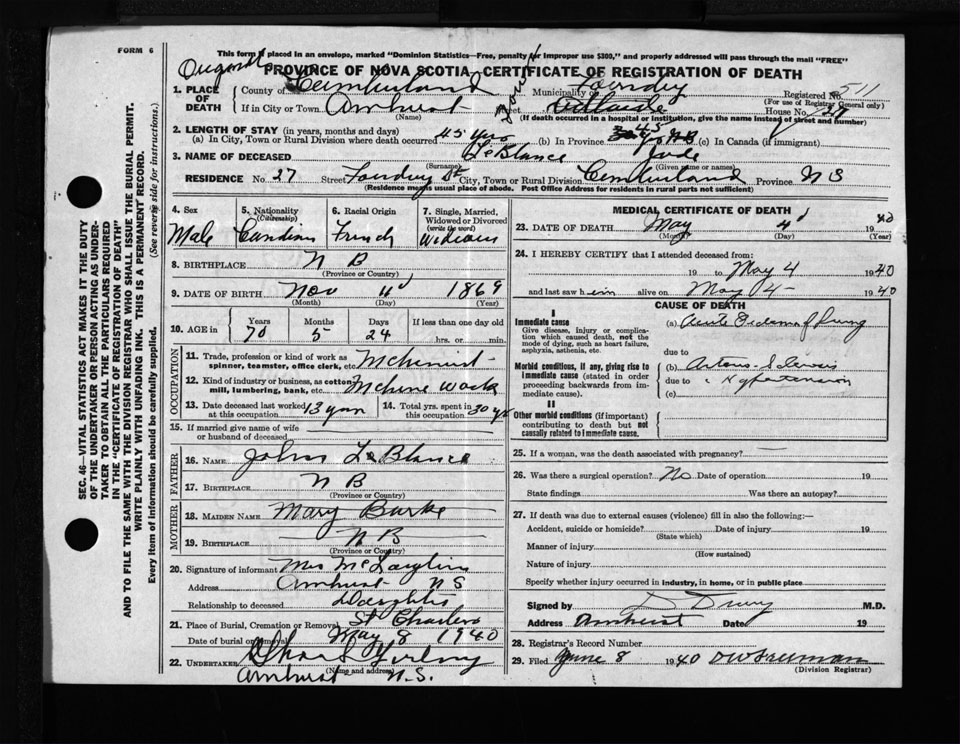 FORM 6
This form if placed in an envelope, marked "Dominion Statistics—Free, penalty for improper use $300," and properly addressed will pass through the mail "FREE"
PROVINCE OF NOVA SCOTIA, CERTIFICATE OF REGISTRATION OF DEATH
1. PLACE OF DEATH
County of Cumberland Municipality of Registered No. 511
(For use of Registrar General only)
If in City or Town Amherst Street House No. 27
(Name) (If death occurred in a hospital or institution, give the name instead of street and number)
2. LENGTH OF STAY (in years, months and days)
(a) In City, Town or Rural Division where death occurred 45 yrs (b) In Province 45 (c) In Canada (if immigrant)
3. NAME OF DECEASED LeBlance Jude
(Surname) (Given name or names)
RESIDENCE No. 27 Street St City, Town or Rural Division Cumberland Province N S
(Residence means usual place of abode. Post Office Address for residents in rural parts not sufficient)
4. Sex
Male
5. Nationality
(Citizenship)
6. Racial Origin
French
7. Single, Married, Widowed or Divorced
(write the word)
8. BIRTHPLACE N B
(Province or Country)
9. DATE OF BIRTH Nov 11 1869
(Month) (Day) (Year)
10. AGE in
Years Months Days If less than one day old
70 5 24 hrs. or min.
OCCUPATION
11. Trade, profession or kind of work as spinner, teamster, office clerk, etc.
12. Kind of industry or business, as cotton mill, lumbering, bank, etc.
13. Date deceased last worked at this occupation 13 years
14. Total yrs. spent in this occupation 30 yrs
15. If married give name of wife or husband of deceased
FATHER
16. NAME John LeBlance
17. BIRTHPLACE N B
(Province or Country)
MOTHER
18. MAIDEN NAME Mary Burke
19. BIRTHPLACE N B
(Province or Country)
20. Signature of informant Mrs McLaughlin
Address Amherst N S
Relationship to deceased Daughter
21. Place of Burial, Cremation or Removal St Charles
Date of burial or removal May 8 1940
22. UNDERTAKER
(Name and address)
Amherst N.S.
MEDICAL CERTIFICATE OF DEATH
23. DATE OF DEATH May 4 19 40
(Month) (Day) (Year)
24. I HEREBY CERTIFY that I attended deceased from:
19 to May 4 1940
and last saw him alive on May 4 1940
CAUSE OF DEATH
I
Immediate cause
Give disease, injury or complication which caused death, not the mode of dying, such as heart failure, asphyxia, asthenia, etc.
(a) Acute Oedema of Lung
due to
Morbid conditions, if any, giving rise to immediate cause (stated in order proceeding backwards from immediate cause)
(b) Arterio Sclerosis
due to Hypertension
(c)
II
Other morbid conditions (if important) contributing to death but not causally related to immediate cause.
25. If a woman, was the death associated with pregnancy?
26. Was there a surgical operation? No Date of operation 19
State findings Was there an autopsy?
27. If death was due to external causes (violence) fill in also the following:—
Accident, suicide or homicide? Date of injury 19
(State which)
Manner of injury
(How sustained)
Nature of injury
Specify whether injury occurred in industry, in home, or in public place
Signed by D Drury M.D.
Address Amherst Date 19
28. Registrar's Record Number
29. Filed June 8 1940
(Division Registrar)
SEC. 46—VITAL STATISTICS ACT MAKES IT THE DUTY
OF THE UNDERTAKER OR PERSON ACTING AS UNDER-
TAKER TO OBTAIN ALL THE PARTICULARS REQUIRED
IN THE "CERTIFICATE OF REGISTRATION OF DEATH"
AND TO FILE THE SAME WITH THE DIVISION REGISTRAR WHO SHALL ISSUE THE BURIAL PERMIT.
WRITE PLAINLY WITH UNFADING INK. THIS IS A PERMANENT RECORD.
Every item of information should be carefully supplied. (See reverse side for instructions.)